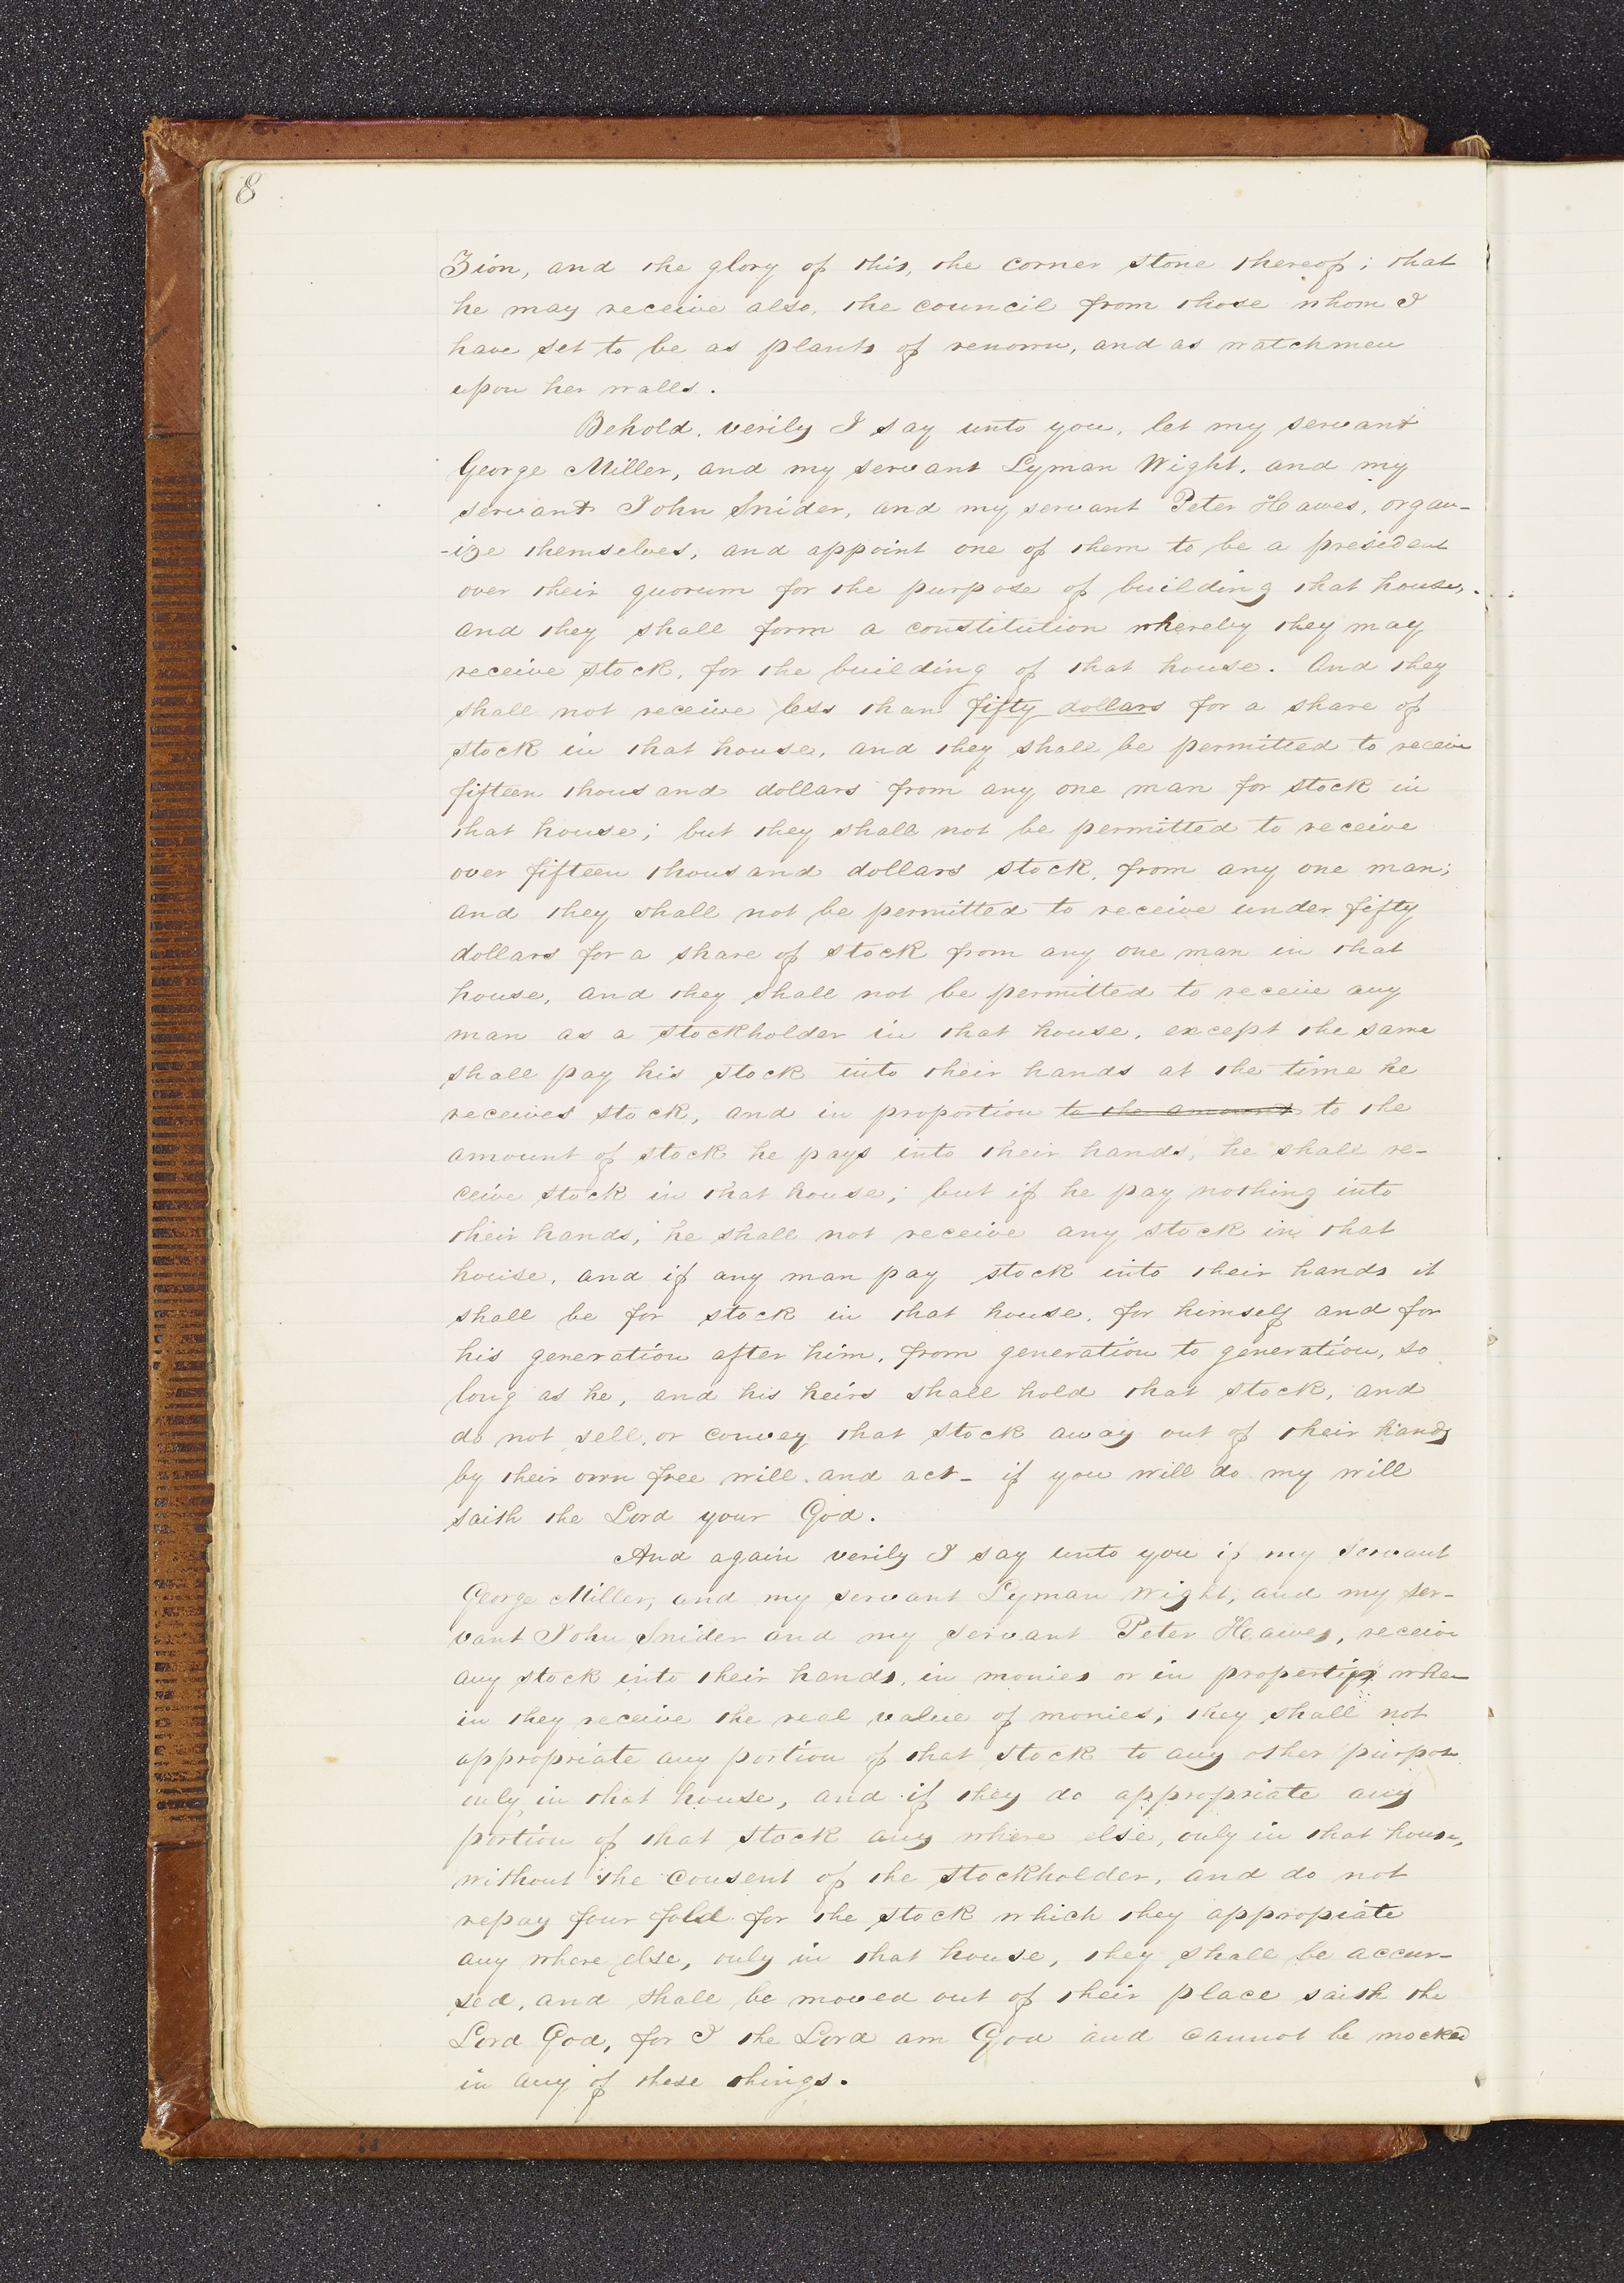 8
Zion, and the glory of this, the corner stone thereof; that
he may receive also, the council from those whom I
have set to be as plants of renown, and as watchmen
upon her walls.
Behold, verily I say unto you, let my servant
George Miller, and my servant Lyman Wight, and my
servant John Snider, and my servant Peter Hawes, organ-
-ize themselves, and appoint one of them to be a president
over their quorum for the purpose of building that house,
and they shall form a constitution whereby they may
receive stock, for the building of that house. And they
shall not receive less than fifty dollars for a share of
stock in that house, and they shall be permitted to receive
fifteen thousand dollars from any one man for stock in
that house; but they shall not be permitted to receive
over fifteen thousand dollars stock, from any one man;
and they shall not be permitted to receive under fifty
dollars for a share of stock from any one man in that
house, and they shall not be permitted to receive any
man as a stockholder in that house, except the same
shall pay his stock into their hands at the time he
receives stock, and in proportion to the amount to the
amount of stock he pays into their hands, he shall re-
ceive stock in that house; but if he pay nothing into
their hands, he shall not receive any stock in that
house, and if any man pay stock into their hands it
shall be for stock in that house, for himself and for
his generation after him, from generation to generation, so
long as he, and his heirs shall hold that stock, and
do not sell, or convey that stock away out of their hands
by their own free will and act- if you will do my will
saith the Lord your God.
And again verily I say unto you if my servant
George Miller, and my servant Lyman Wight, and my ser-
vant John Snider and my servant Peter Hawes, receive
any stock into their hands, in monies or in properties where
in they receive the real value of monies, they shall not
appropriate any portion of that stock to any other purpose
only in that house, and if they do appropriate any
portion of that stock any where else, only in that house,
without the consent of the stockholder, and do not
repay four fold for the stock which they appropiate
any where else, only in that house, they shall be accur-
sed, and shall be moved out of their place saith the
Lord God, for I the Lord am God and cannot be mocked
in any of these things.